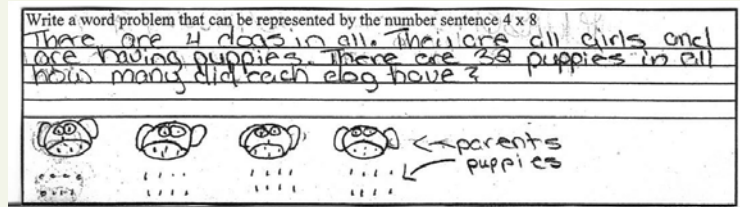 Write a word problem that can be represented by the number sentence 4 x 8
There are 4 dogs in all. Their are all girls and
are having puppies. There are 32 puppies in all
how many did each dog have?
parents
puppies